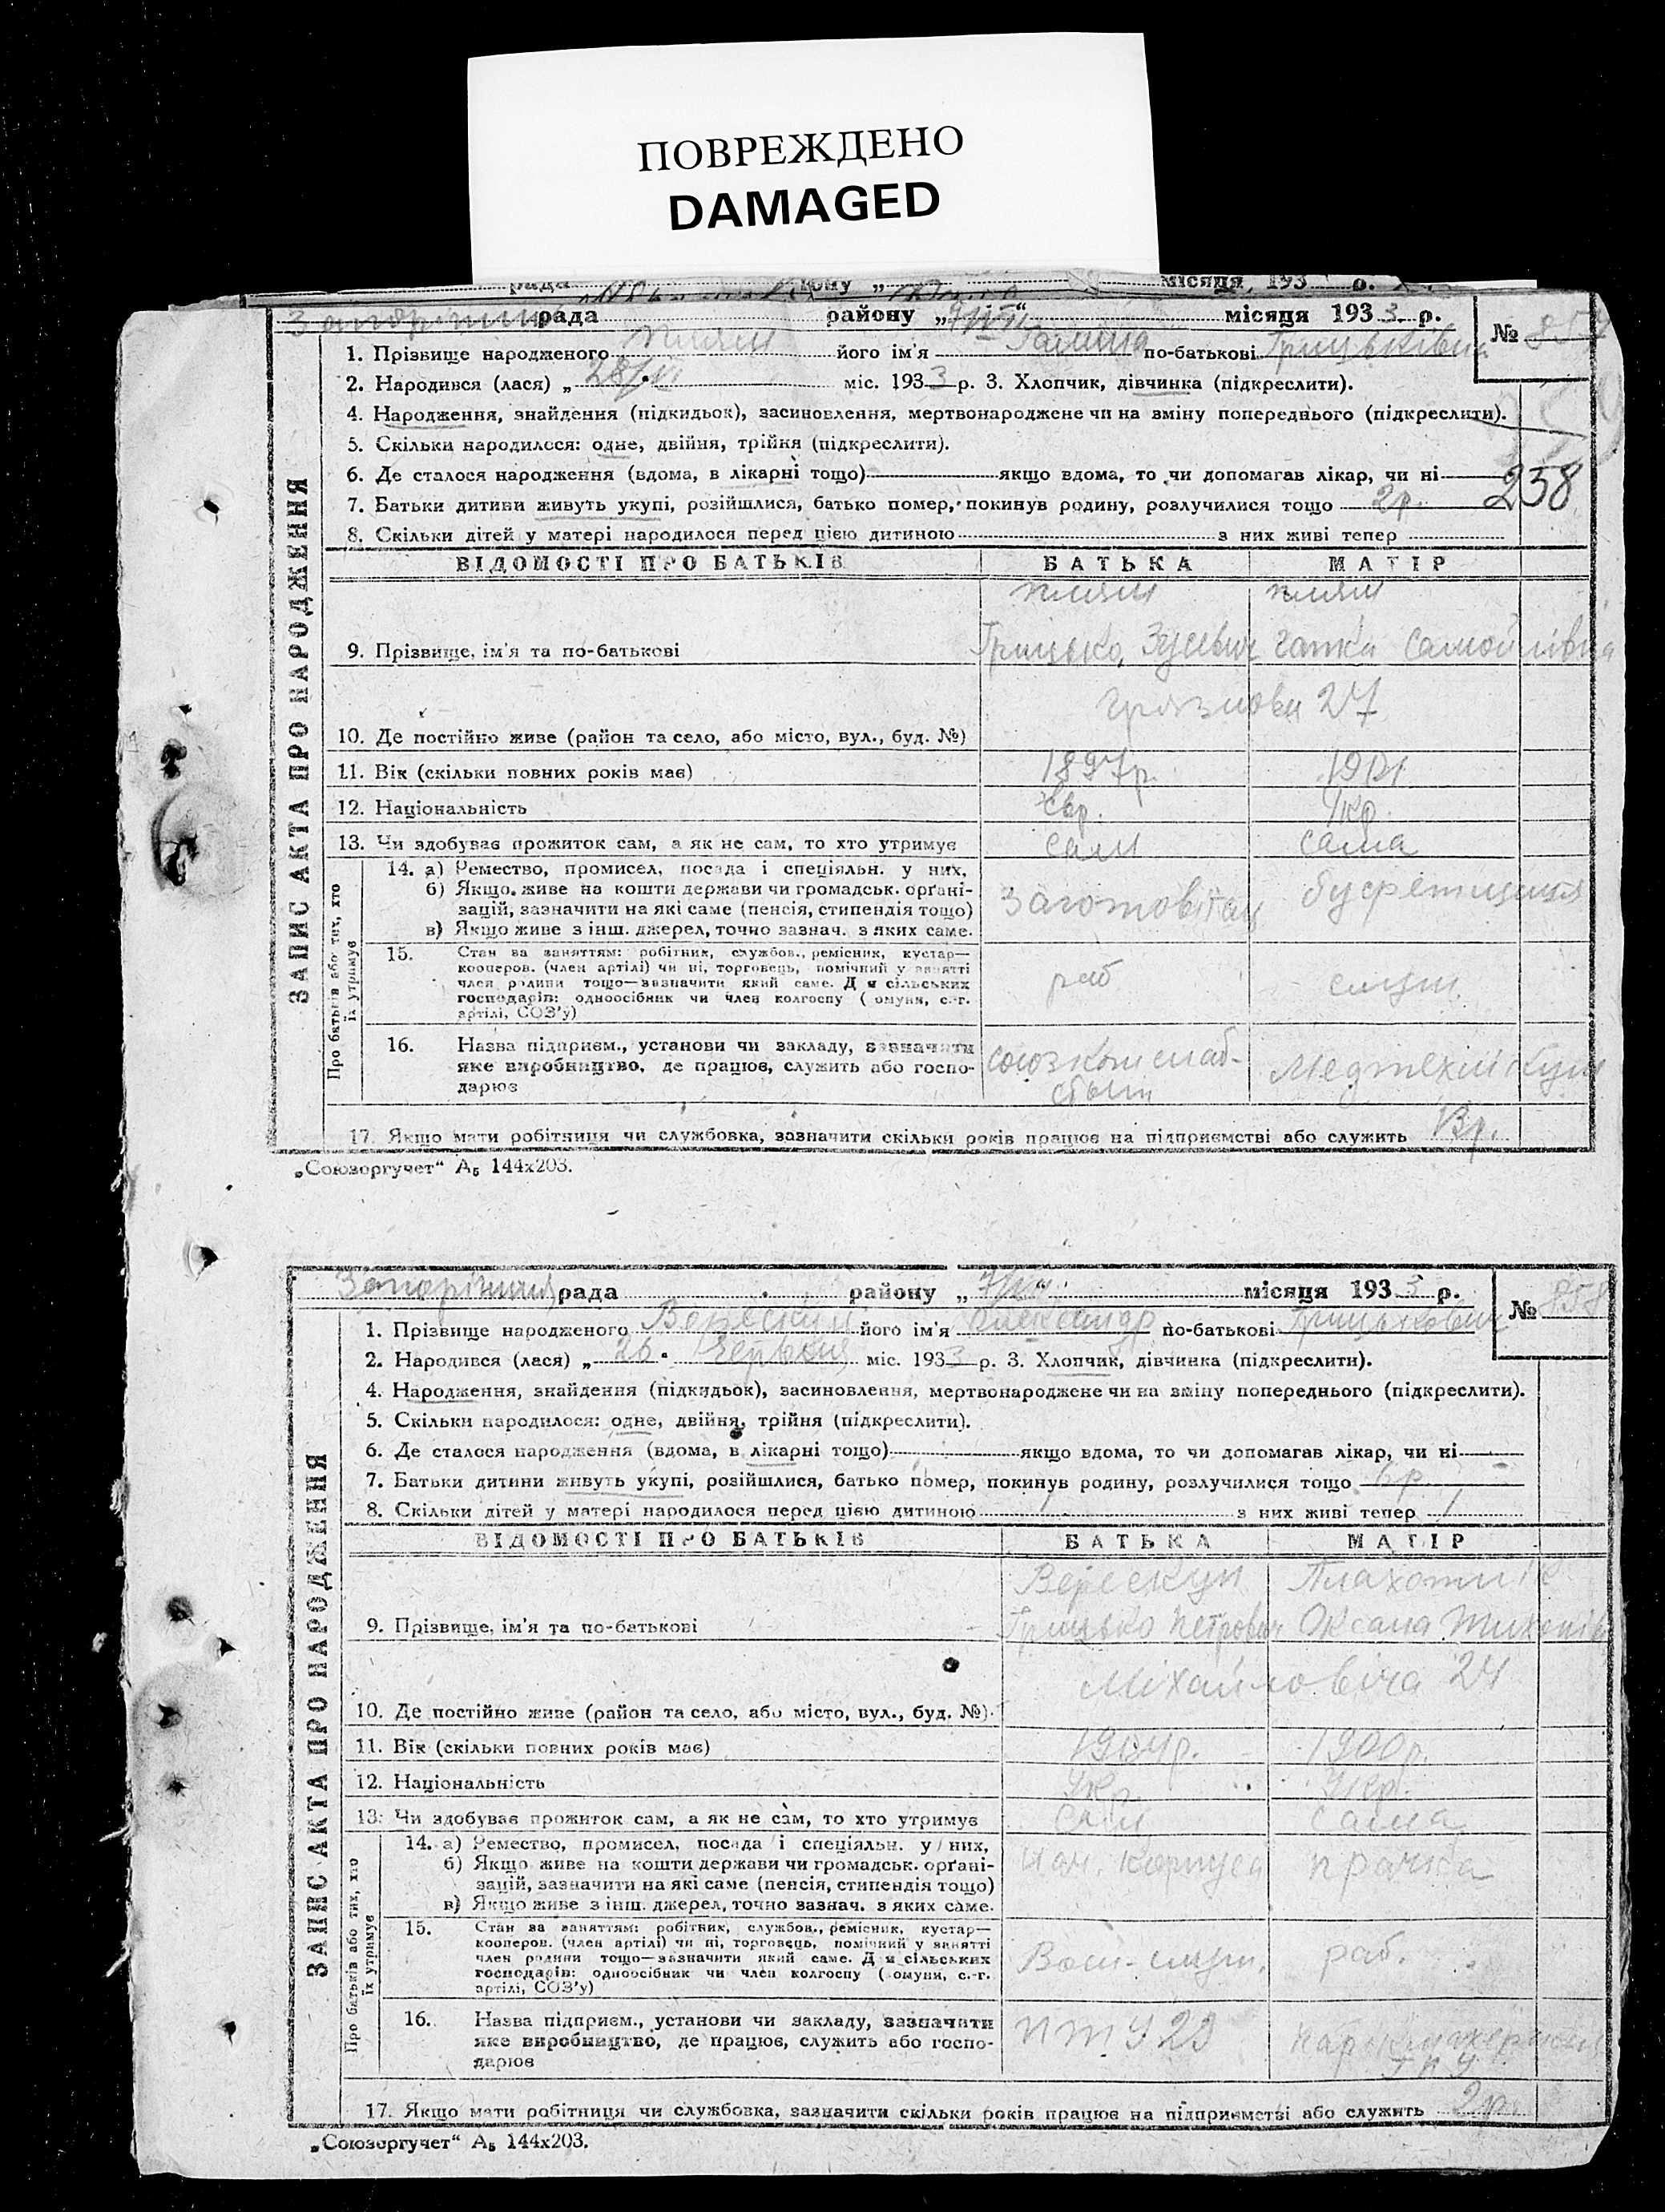 ПОВРЕЖДЕНО
DAMAGED
рада місяця, 193 р.
рада району „7/VII“ місяця 1933 р. № 857
1. Прізвище народженого його ім'я Галина по-батькові Грицьківна
2. Народився (лася) „28/VI міс. 1933 р. 3. Хлопчик, дівчинка (підкреслити).
4. Народження, знайдення (підкидьок), засиновлення, мертвонароджене чи на зміну попереднього (підкреслити).
5. Скільки народилося: одне, двійня, трійня (підкреслити).
6. Де сталося народження (вдома, в лікарні тощо) якщо вдома, то чи допомагав лікар, чи ні
258
7. Батьки дитини живуть укупі, розійшлися, батько помер, покинув родину, розлучилися тощо 2р.
8. Скільки дітей у матері народилося перед цією дитиною з них живі тепер
ВІДОМОСТІ ПРО БАТЬКІВ БАТЬКА МАТІР
9. Прізвище, ім'я та по-батькові Грицько Зусевич Гапка Самойлівна
10. Де постійно живе (район та село, або місто, вул., буд. №) Грязнова 27
11. Вік (скільки повних років має) 1897р. 1901
12. Національність Євр. Укр.
13. Чи здобуває прожиток сам, а як не сам, то хто утримує сам сама
14. а) Ремество, промисел, посада і спеціяльн. у них,
б) Якщо живе на кошти держави чи громадськ. орґані-
зацій, зазначити на які саме (пенсія, стипендія тощо)
в) Якщо живе з інш. джерел, точно зазнач. з яких саме.
Заготовітель буфетниця
15. Стан за заняттям: робітник, службов., ремісник, кустар—
кооперов. (член артілі) чи ні, торговець, помічний у занятті
член родини тощо—зазначити який саме. Для сільських
господарів: одноосібник чи член колгоспу (комуни, с.-г.
артілі, СОЗ'у)
раб служ.
16. Назва підприєм., установи чи закладу, зазначити
яке виробництво, де працює, служить або госпо-
дарює
17. Якщо мати робітниця чи службовка, зазначити скільки років працює на підприємстві або служить
ЗАПИС АКТА ПРО НАРОДЖЕННЯ
Про батьків або тих, хто їх утримує
„Союзоргучет“ А₅ 144х203.
рада району „7/VII“ місяця 1933 р. № 858
1. Прізвище народженого Верескун його ім'я Олександр по-батькові Грицькович
2. Народився (лася) „26“ Червня міс. 1933 р. 3. Хлопчик, дівчинка (підкреслити).
4. Народження, знайдення (підкидьок), засиновлення, мертвонароджене чи на зміну попереднього (підкреслити).
5. Скільки народилося: одне, двійня, трійня (підкреслити).
6. Де сталося народження (вдома, в лікарні тощо) якщо вдома, то чи допомагав лікар, чи ні
7. Батьки дитини живуть укупі, розійшлися, батько помер, покинув родину, розлучилися тощо
8. Скільки дітей у матері народилося перед цією дитиною 1 з них живі тепер 1
ВІДОМОСТІ ПРО БАТЬКІВ БАТЬКА МАТІР
Верескун Плахотник
9. Прізвище, ім'я та по-батькові Грицько Петрович Оксана
10. Де постійно живе (район та село, або місто, вул., буд. №) Міхайловіча 24
11. Вік (скільки повних років має) 1904р. 1900р.
12. Національність Укр. Укр.
13. Чи здобуває прожиток сам, а як не сам, то хто утримує сам сама
14. а) Ремество, промисел, посада і спеціяльн. у них,
б) Якщо живе на кошти держави чи громадськ. орґані-
зацій, зазначити на які саме (пенсія, стипендія тощо)
в) Якщо живе з інш. джерел, точно зазнач. з яких саме.
нач. корпуса прачка
15. Стан за заняттям: робітник, службов., ремісник, кустар—
кооперов. (член артілі) чи ні, торговець, помічний у занятті
член родини тощо—зазначити який саме. Для сільських
господарів: одноосібник чи член колгоспу (комуни, с.-г.
артілі, СОЗ'у)
служ. раб.
16. Назва підприєм., установи чи закладу, зазначити
яке виробництво, де працює, служить або госпо-
дарює
ГПУ
17. Якщо мати робітниця чи службовка, зазначити скільки років працює на підприємстві або служить 2р.
ЗАПИС АКТА ПРО НАРОДЖЕННЯ
Про батьків або тих, хто їх утримує
„Союзоргучет“ А₅ 144х203.